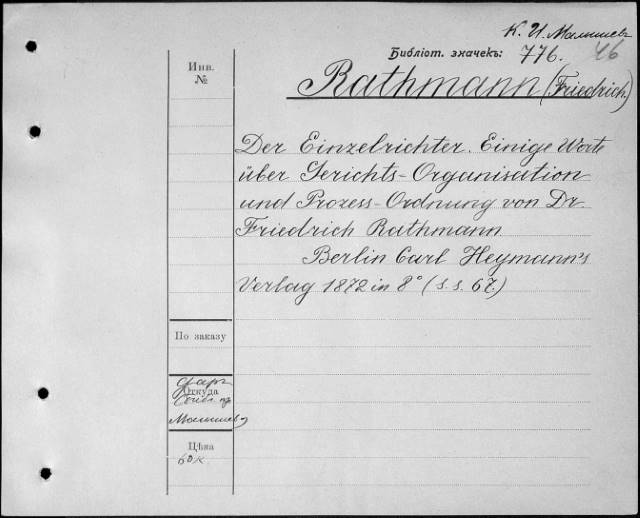 К. И. Малышев
Библіот. значекъ: 776. 46
Инв.
№
Rathmann (Friedrich.)
Der Einzelrichter. Einige Worte
über Gerichts-Organisation
und Prozess-Ordnung von Dr
Friedrich Rathmann
Berlin Carl Heymann's
Verlag 1872 in 8° (s. s. 67.)
По заказу
Откуда
Малышев
Цѣна
60 к